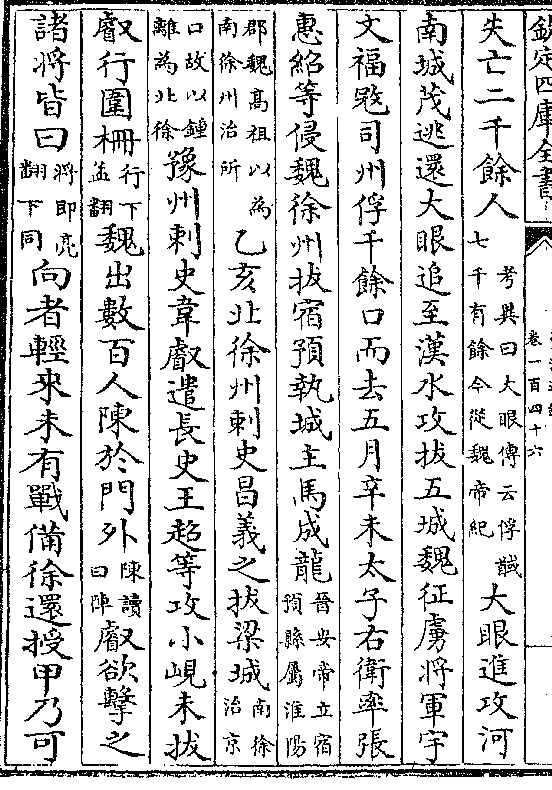 欽定四庫全書
卷一百四十六
失亡二千餘人考異曰大眼傳云俘馘七千有餘今從魏帝紀大眼進攻河
南城茂逃還大眼追至漢水攻拔五城魏征虜將軍宇
文福寇司州俘千餘口而去五月辛未太子右衛率張
惠紹等侵魏徐州拔宿預執城主馬成龍晉安帝立宿預縣屬淮陽
郡魏高祖以為南徐州治所乙亥北徐州刺史昌義之拔梁城南徐治京
口故以鍾離為北徐豫州刺史韋叡遣長史王超等攻小峴未拔
叡行圍柵行下孟翻魏出數百人陳於門外陳讀曰陣叡欲擊之
諸將皆曰將即亮翻下同向者輕來未有戰備徐還授甲乃可